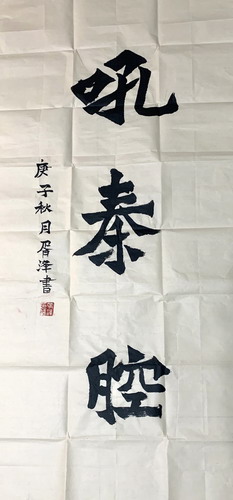 吼秦腔
庚子秋月胥泽書